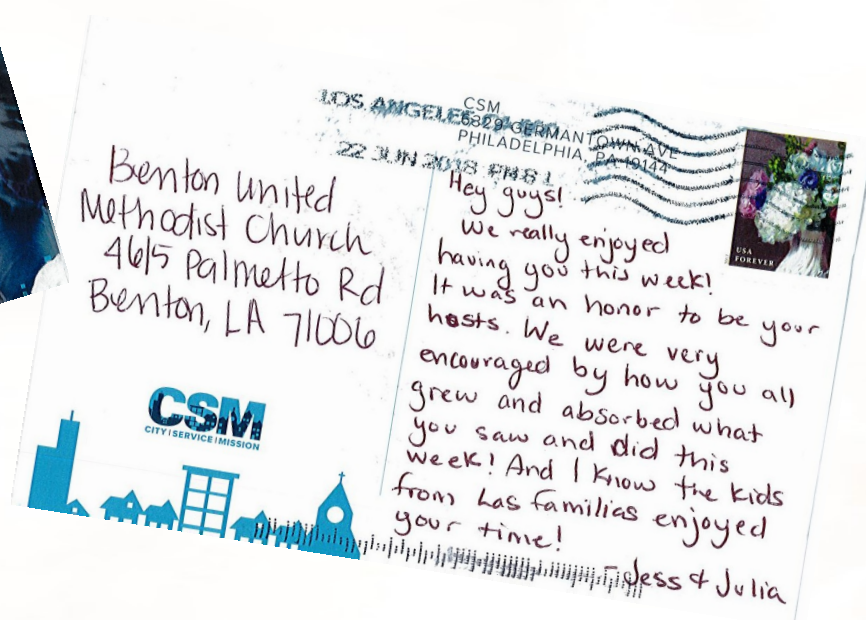 CSM
6829 GERMANTOWN AVE
PHILADELPHIA, PA 19144
LOS ANGELES
22 JUN 2018 PM 8 L
USA
FOREVER
Benton United
Methodist Church
4615 Palmetto Rd
Benton, LA 71006
CSM
CITY | SERVICE | MISSION
Hey guys!
We really enjoyed
having you this week!
It was an honor to be your
hosts. We were very
encouraged by how you all
grew and absorbed what
you saw and did this
week! And I know the kids
from Las Familias enjoyed
your time!
- Jess & Julia